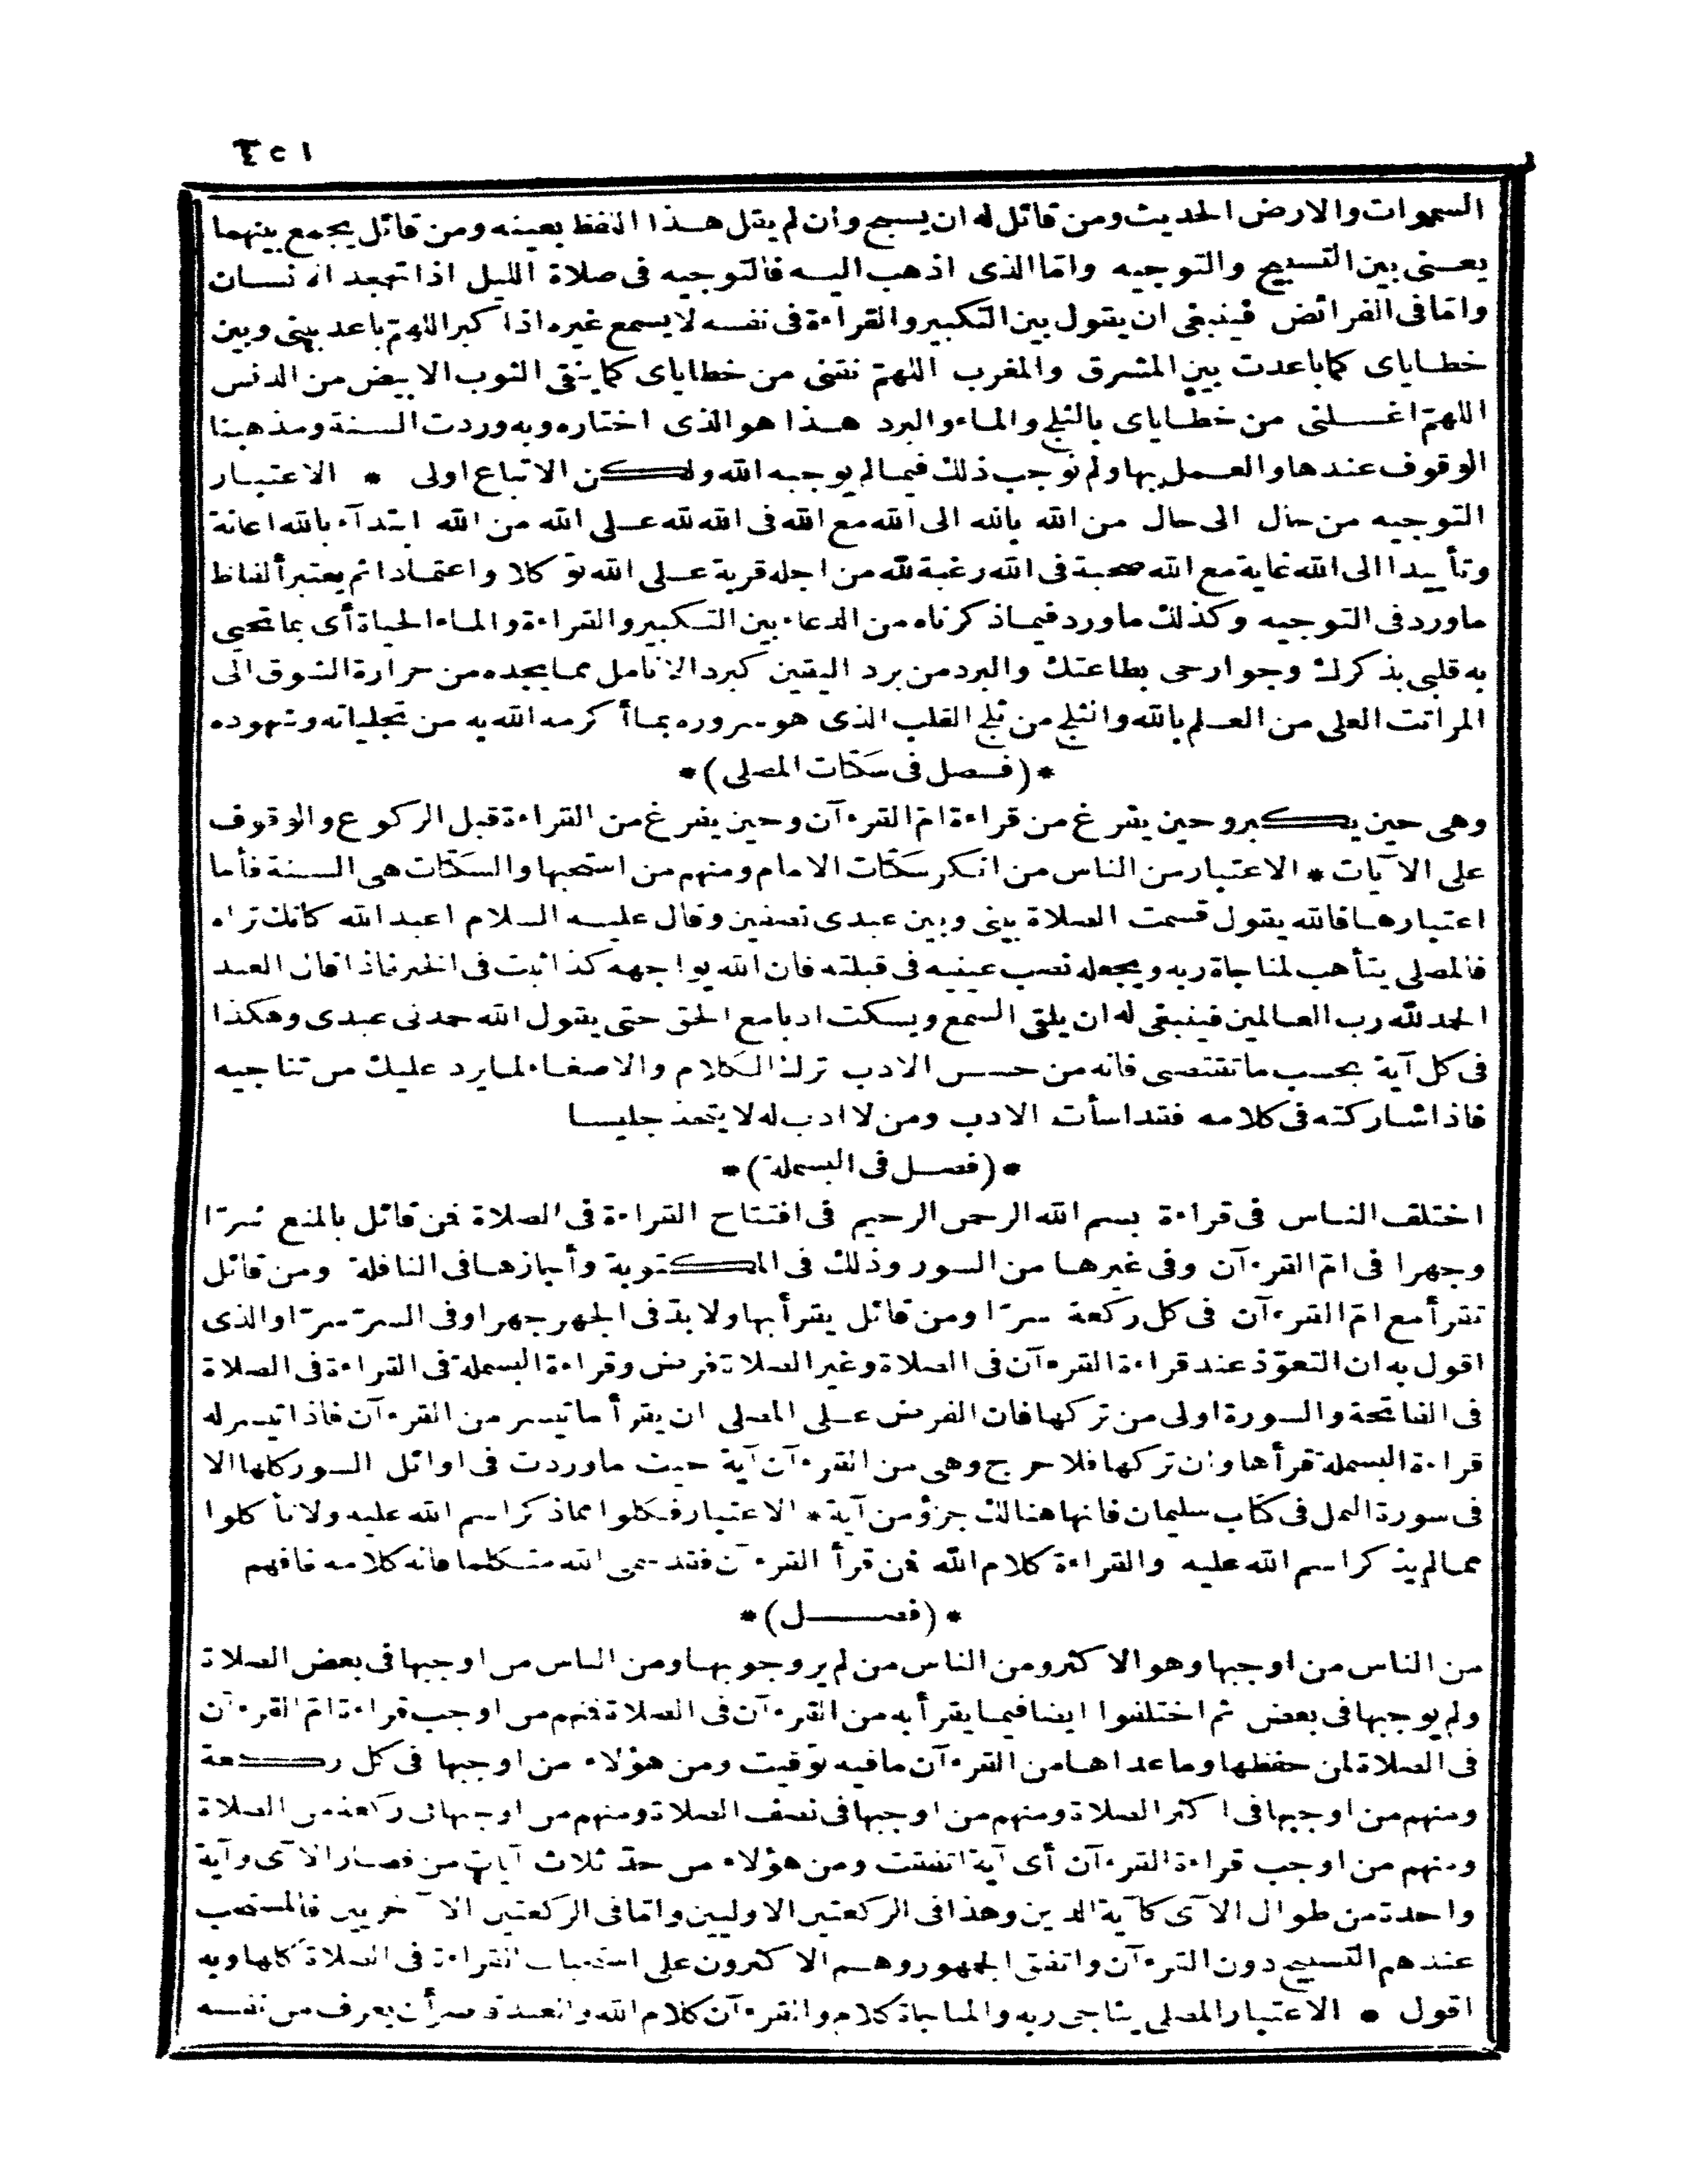 السموات والارض الحديث ومن قائل له ان يسبح وان لم يقل هذا اللفظ بعينه ومن قائل يجمع بينهما
يعنى بين التسبيح والتوجيه واما الذى اذهب اليه فالتوجيه فى صلاة الليل اذا تهجد الانسان
واما فى الفرائض فينبغى ان يقول بين التكبير والقراءة فى نفسه لا يسمع غيره اذا كبر اللهم باعد بينى وبين
خطاياى كما باعدت بين المشرق والمغرب اللهم نقنى من خطاياى كما ينقى الثوب الابيض من الدنس
اللهم اغسلنى من خطاياى بالثلج والماء والبرد هذا هو الذى اختاره وبه وردت السنة ومذهبنا
الوقوف عندها والعمل بها ولم نوجب ذلك فيما لم يوجبه الله ولكن الاتباع اولى * الاعتبار
التوجيه من حال الى حال من الله بالله الى الله مع الله فى الله لله على الله من الله ابتدآء بالله اعانة
وتأييدا الى الله غاية مع الله صحبة فى الله رغبة لله من اجله قربة على الله توكلا واعتمادا ثم يعتبر ألفاظ
ماورد فى التوجيه وكذلك ماورد فيما ذكرناه من الدعاء بين التكبير والقراءة والماء الحياة أى بما تحيى
به قلبى بذكرك وجوارحى بطاعتك والبرد من برد اليقين كبرد الانامل مما يجده من حرارة الشوق الى
المراتب العلى من العلم بالله والثلج من ثلج القلب الذى هو سروره بما أكرمه الله به من تجلياته وشهوده
*(فصل فى سكتات المصلى)*
وهى حين يكبر وحين يفرغ من قراءة ام القرءآن وحين يفرغ من القراءة قبل الركوع والوقوف
على الآيات * الاعتبار من الناس من انكر سكتات الامام ومنهم من استحبها والسكتات هى السنة فأما
اعتبارها فالله يقول قسمت الصلاة بينى وبين عبدى نصفين وقال عليه السلام اعبد الله كانك تراه
فالمصلى يتأهب لمناجاة ربه ويجعله نصب عينيه فى قبلته فان الله يواجهه كذا ثبت فى الخبر فاذا قال العبد
الحمد لله رب العالمين فينبغى له ان يلقى السمع ويسكت ادبا مع الحق حتى يقول الله حمدنى عبدى وهكذا
فى كل آية بحسب ما تقتضى فانه من حسن الادب ترك الكلام والاصغاء لما يرد عليك من تناجيه
فاذا شاركته فى كلامه فقد اسأت الادب ومن لا ادب له لا يتخذ جليسا
*(فصل فى البسملة)*
اختلف الناس فى قراءة بسم الله الرحمن الرحيم فى افتتاح القراءة فى الصلاة فمن قائل بالمنع سرا
وجهرا فى ام القرءآن وفى غيرها من السور وذلك فى المكتوبة وأجازها فى النافلة ومن قائل
تقرأ مع ام القرءآن فى كل ركعة سرا ومن قائل يقرأ بها ولا بد فى الجهر جهرا وفى السر سرا والذى
اقول به ان التعوذ عند قراءة القرءآن فى الصلاة وغير الصلاة فرض وقراءة البسملة فى القراءة فى الصلاة
فى الفاتحة والسورة اولى من تركها فان الفرض على المصلى ان يقرأ ما تيسر من القرءآن فاذا تيسر له
قراءة البسملة قرأها وان تركها فلا حرج وهى من القرءآن آية حيث ماوردت فى اوائل السور كلها الا
فى سورة النمل فى كتاب سليمان فانها هنالك جزؤ من آية * الاعتبار فكلوا مما ذكر اسم الله عليه ولا تأكلوا
مما لم يذكر اسم الله عليه والقراءة كلام الله فمن قرأ القرءآن فقد سمى الله متكلما فانه كلامه فافهم
*(فصل)*
من الناس من اوجبها وهو الاكثر ومن الناس من لم ير وجوبها ومن الناس من اوجبها فى بعض الصلاة
ولم يوجبها فى بعض ثم اختلفوا ايضا فيما يقرأ به من القرءآن فى الصلاة فمنهم من اوجب قراءة ام القرءآن
فى الصلاة لمن حفظها وما عداها من القرءآن ما فيه توقيت ومن هؤلاء من اوجبها فى كل ركعة
ومنهم من اوجبها فى اكثر الصلاة ومنهم من اوجبها فى نصف الصلاة ومنهم من اوجبها فى ركعة من الصلاة
ومنهم من اوجب قراءة القرءآن أى آية اتفقت ومن هؤلاء من حد ثلاث آيات من قصار الآى وآية
واحدة من طوال الآى كآية الدين وهذا فى الركعتين الاوليين واما فى الركعتين الآخريين فالمستحب
عندهم التسبيح دون القرءآن واتفق الجمهور وهم الاكثرون على استحباب القراءة فى الصلاة كلها وبه
اقول * الاعتبار المصلى يناجى ربه والمناجاة كلام والقرءآن كلام الله والعبد أن يعرف من نفسه